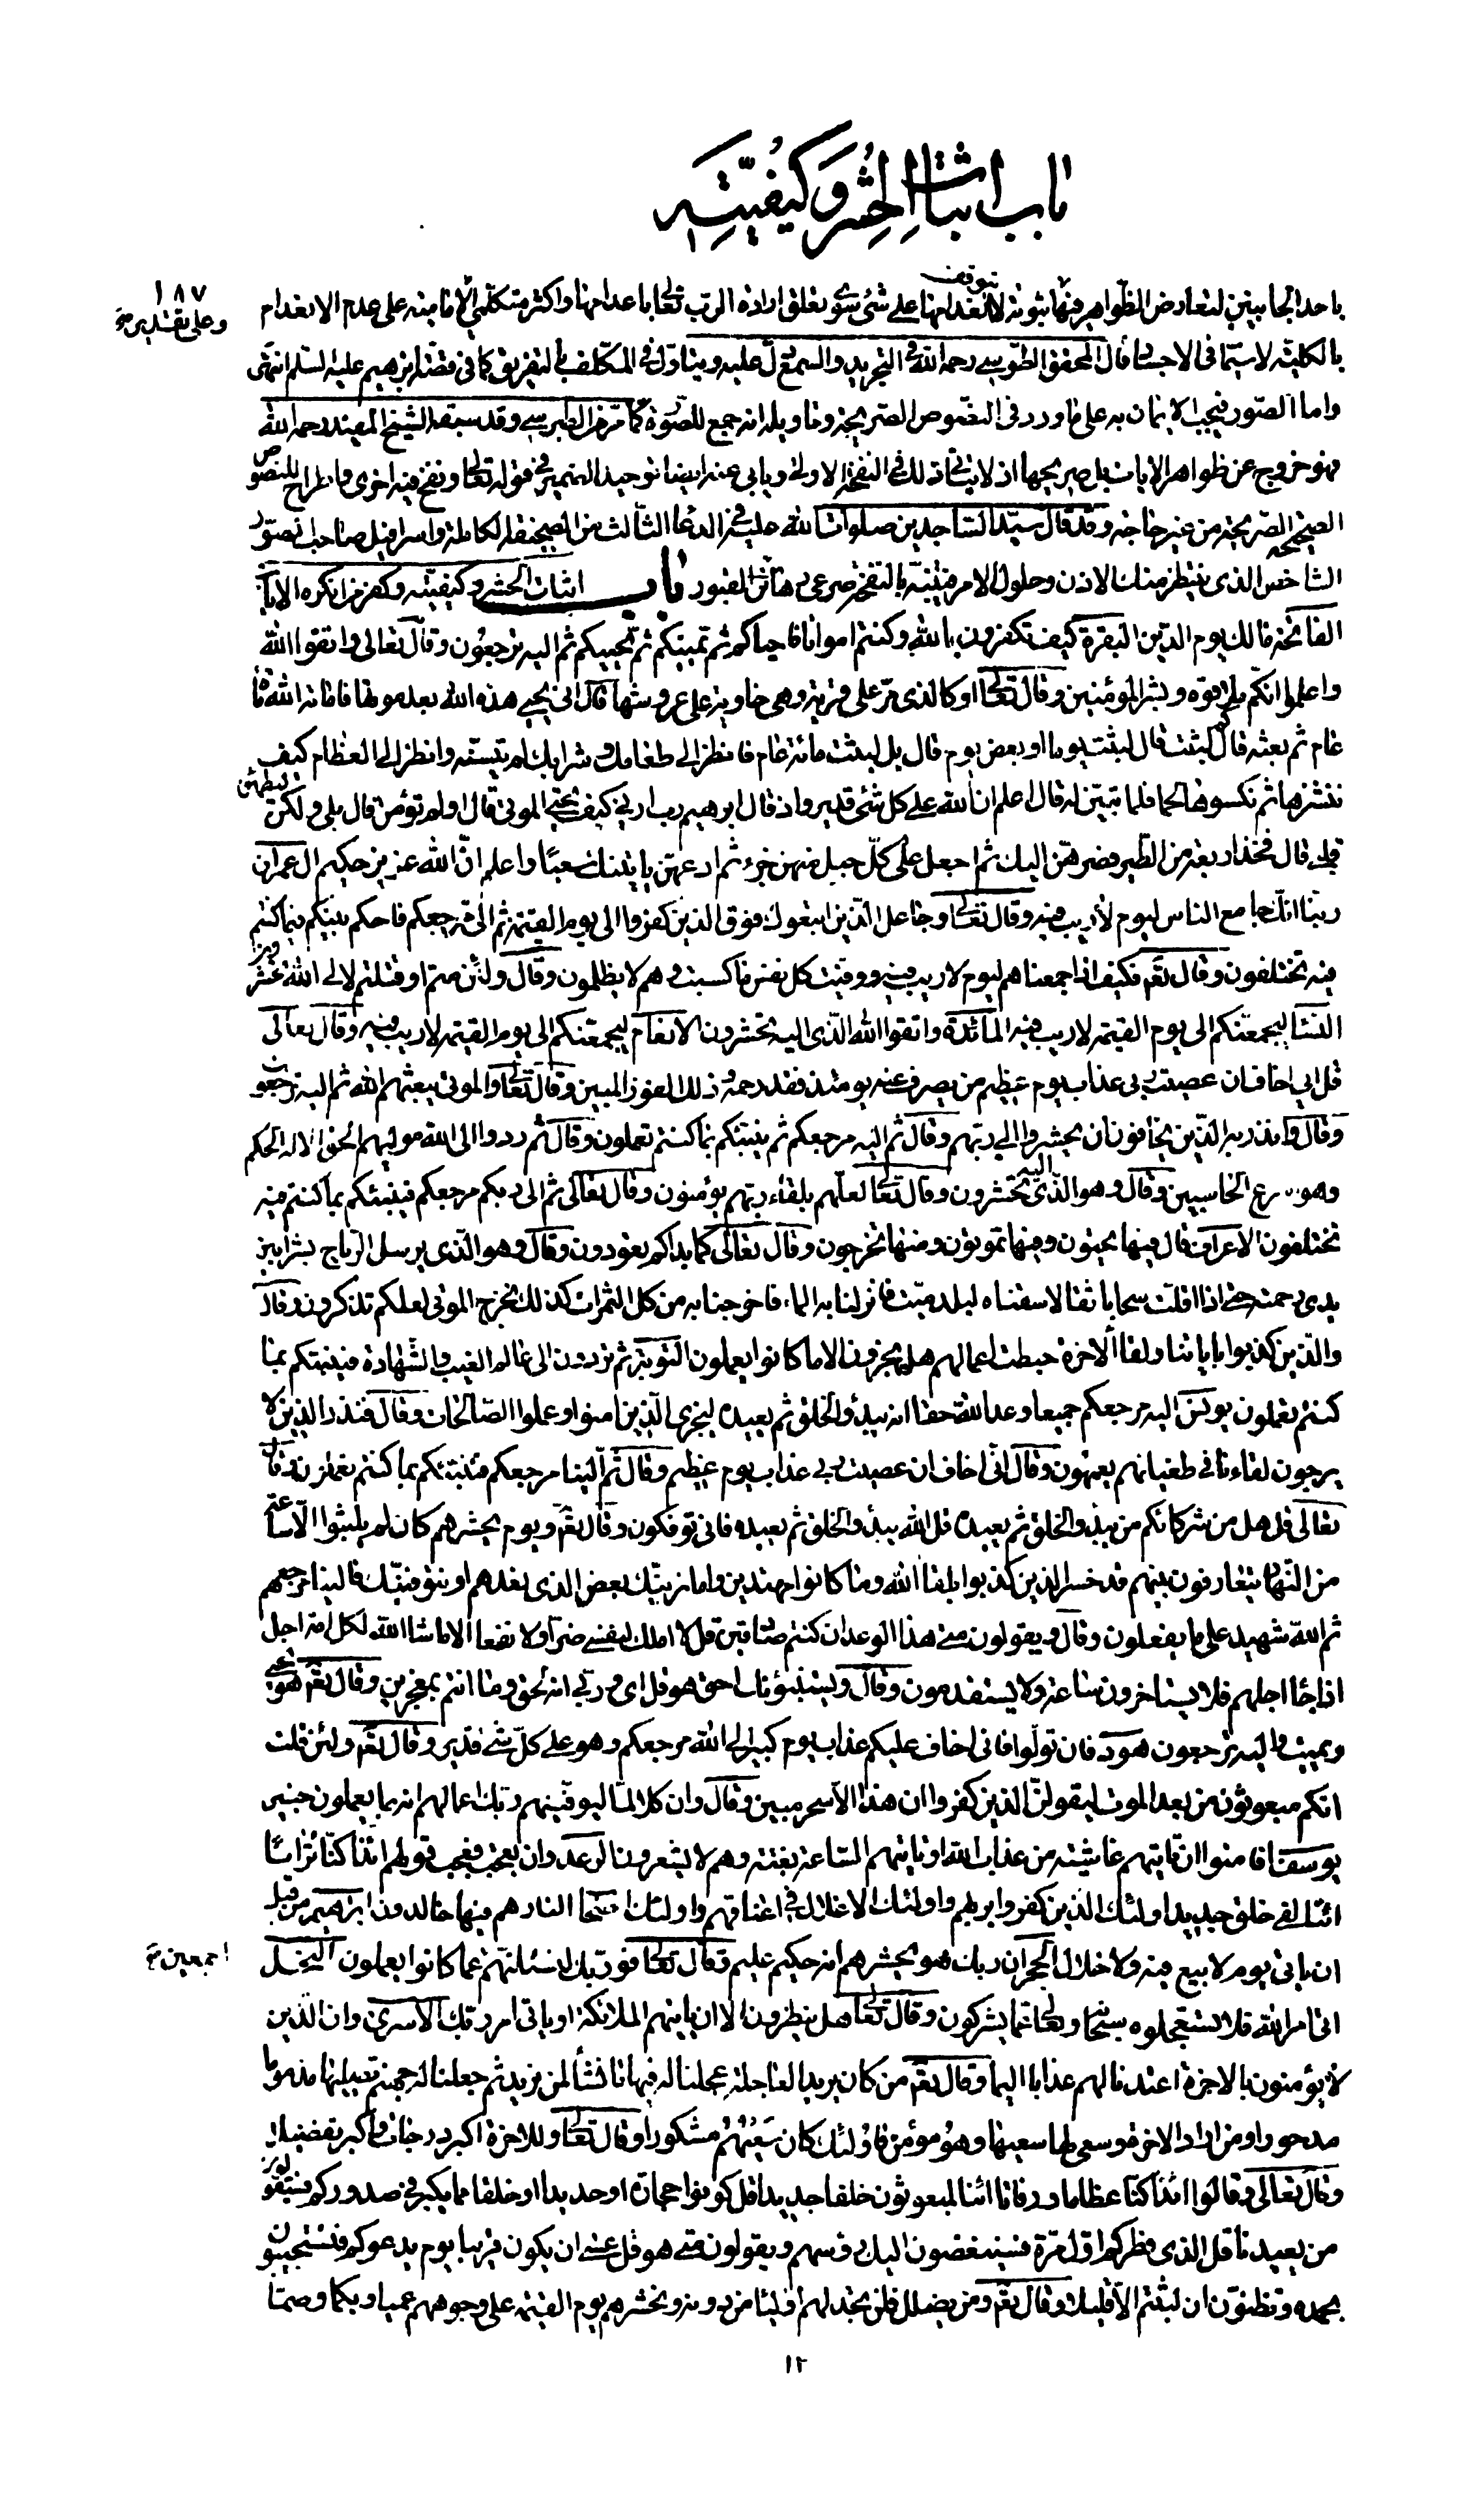 باب اثبات الحشر وكيفيته
١٨٧
باحد الجانبين لتعارض الظواهر فيها وعلى تقدير ثبوته لا يتوقف انعدامها على شئ سوى تعلق ارادة الرب تعالى باعدامها واكثر متكلمى الامامية على عدم الانعدام
بالكلية لاسيما فى الاجساد قال المحقق الطوسى رحمه الله فى التجريد والسمع دل عليه ويتاول فى المكلف بالتفريق كما فى قصة ابرهيم عليه السلم انتهى
واما الصور فيجب الايمان به على ما ورد فى النصوص الصريحة وتاويله انه جمع للصورة كما مر من الطبرسى وقد سبقه الشيخ المفيد رحمه الله
فهو خروج عن ظواهر الايات بل صريحها اذ لا يتاتى ذلك فى النفخة الاولى ويابى عنه ايضا توحيد الضمير فى قوله تعالى ونفخ فيه اخرى واطراح للنصوص
الصحيحة الصريحة من غير حاجة وقد قال سيد الساجدين صلوات الله عليه فى الدعاء الثالث من الصحيفة الكاملة واسرافيل صاحب الصور
الشاخص الذى ينتظر منك الاذن وحلول الامر فينبه بالنفخة صرعى رهائن القبور باب اثبات الحشر وكيفيته وكفر من انكره الايات
الفاتحة مالك يوم الدين البقرة كيف تكفرون بالله وكنتم امواتا فاحياكم ثم يميتكم ثم يحييكم ثم اليه ترجعون وقال تعالى واتقوا الله
واعلموا انكم ملاقوه وبشر المؤمنين وقال تعالى او كالذى مر على قرية وهى خاوية على عروشها قال انى يحيى هذه الله بعد موتها فاماته الله مائة
عام ثم بعثه قال كم لبثت قال لبثت يوما او بعض يوم قال بل لبثت مائة عام فانظر الى طعامك وشرابك لم يتسنه وانظر الى العظام كيف
ننشزها ثم نكسوها لحما فلما تبين له قال اعلم ان الله على كل شئ قدير واذ قال ابرهيم رب ارنى كيف تحيى الموتى قال اولم تؤمن قال بلى ولكن ليطمئن
قلبى قال فخذ اربعة من الطير فصرهن اليك ثم اجعل على كل جبل منهن جزء ثم ادعهن ياتينك سعيا واعلم ان الله عزيز حكيم ال عمران
ربنا انك جامع الناس ليوم لا ريب فيه وقال تعالى وجاعل الذين اتبعوك فوق الذين كفروا الى يوم القيمة ثم الى مرجعكم فاحكم بينكم فيما كنتم
فيه تختلفون وقال تعم فكيف اذا جمعناهم ليوم لا ريب فيه ووفيت كل نفس ما كسبت وهم لا يظلمون وقال ولئن متم او قتلتم لالى الله تحشرون
النساء ليجمعنكم الى يوم القيمة لا ريب فيه المائدة واتقوا الله الذى اليه تحشرون الانعام ليجمعنكم الى يوم القيمة لا ريب فيه وقال تعالى
قل انى اخاف ان عصيت ربى عذاب يوم عظيم من يصرف عنه يومئذ فقد رحمه وذلك الفوز المبين وقال تعالى والموتى يبعثهم الله ثم اليه يرجعون
وقال وانذر به الذين يخافون ان يحشروا الى ربهم وقال ثم اليه مرجعكم ثم ينبئكم بما كنتم تعملون وقال ثم ردوا الى الله موليهم الحق الا له الحكم
وهو اسرع الحاسبين وقال وهو الذى اليه تحشرون وقال تعالى لعلهم بلقاء ربهم يؤمنون وقال تعالى ثم الى ربكم مرجعكم فينبئكم بما كنتم فيه
تختلفون الاعراف قال فيها تحيون وفيها تموتون ومنها تخرجون وقال تعالى كما بداكم تعودون وقال وهو الذى يرسل الرياح بشرا بين
يدى رحمته حتى اذا اقلت سحابا ثقالا سقناه لبلد ميت فانزلنا به الماء فاخرجنا به من كل الثمرات كذلك نخرج الموتى لعلكم تذكرون وقال
والذين كذبوا باياتنا ولقاء الاخرة حبطت اعمالهم هل يجزون الا ما كانوا يعملون التوبة ثم تردون الى عالم الغيب والشهادة فينبئكم بما
كنتم تعملون يونس اليه مرجعكم جميعا وعد الله حقا انه يبدؤ الخلق ثم يعيده ليجزى الذين امنوا وعملوا الصالحات وقال فنذر الذين لا
يرجون لقاءنا فى طغيانهم يعمهون وقال انى اخاف ان عصيت ربى عذاب يوم عظيم وقال ثم الينا مرجعكم فننبئكم بما كنتم تعملون وقال
تعالى قل هل من شركائكم من يبدؤ الخلق ثم يعيده قل الله يبدؤ الخلق ثم يعيده فانى توفكون وقال تعم ويوم يحشرهم كان لم يلبثوا الا ساعة
من النهار يتعارفون بينهم قد خسر الذين كذبوا بلقاء الله وما كانوا مهتدين واما نرينك بعض الذى نعدهم او نتوفينك فالينا مرجعهم
ثم الله شهيد على ما يفعلون وقال ويقولون متى هذا الوعد ان كنتم صادقين قل لا املك لنفسى ضرا ولا نفعا الا ما شاء الله لكل امة اجل
اذا جاء اجلهم فلا يستاخرون ساعة ولا يستقدمون وقال ويستنبؤنك احق هو قل اى وربى انه لحق وما انتم بمعجزين وقال تعم هو يحيى
ويميت واليه ترجعون هود فان تولوا فانى اخاف عليكم عذاب يوم كبير الى الله مرجعكم وهو على كل شئ قدير وقال تعم ولئن قلت
انكم مبعوثون من بعد الموت ليقولن الذين كفروا ان هذا الا سحر مبين وقال وان كلا لما ليوفينهم ربك اعمالهم انه بما يعملون خبير
يوسف افامنوا ان تاتيهم غاشية من عذاب الله او تاتيهم الساعة بغتة وهم لا يشعرون الرعد وان تعجب فعجب قولهم ائذا كنا ترابا
ائنا لفى خلق جديد اولئك الذين كفروا بربهم واولئك الاغلال فى اعناقهم واولئك اصحاب النار هم فيها خالدون ابرهيم من قبل
ان ياتى يوم لا بيع فيه ولا خلال الحجر ان ربك هو يحشرهم انه حكيم عليم وقال تعالى فوربك لنسئلنهم اجمعين عما كانوا يعملون النحل
اتى امر الله فلا تستعجلوه سبحانه وتعالى عما يشركون وقال تعالى هل ينظرون الا ان ياتيهم الملائكة او ياتى امر ربك الاسرى وان الذين
لا يؤمنون بالاخرة اعتدنا لهم عذابا اليما وقال تعم من كان يريد العاجلة عجلنا له فيها ما نشاء لمن نريد ثم جعلنا له جهنم يصليها مذموما
مدحورا ومن اراد الاخرة وسعى لها سعيها وهو مؤمن فاولئك كان سعيهم مشكورا وقال تعالى وللاخرة اكبر درجات واكبر تفضيلا
وقال تعالى وقالوا ائذا كنا عظاما ورفاتا ائنا لمبعوثون خلقا جديدا قل كونوا حجارة او حديدا او خلقا مما يكبر فى صدوركم فسيقولون
من يعيدنا قل الذى فطركم اول مرة فسينغضون اليك رؤسهم ويقولون متى هو قل عسى ان يكون قريبا يوم يدعوكم فتستجيبون
بحمده وتظنون ان لبثتم الا قليلا وقال تعم ومن يضلل فلن تجد لهم اولياء من دونه ونحشرهم يوم القيمة على وجوههم عميا وبكما وصما
١٢